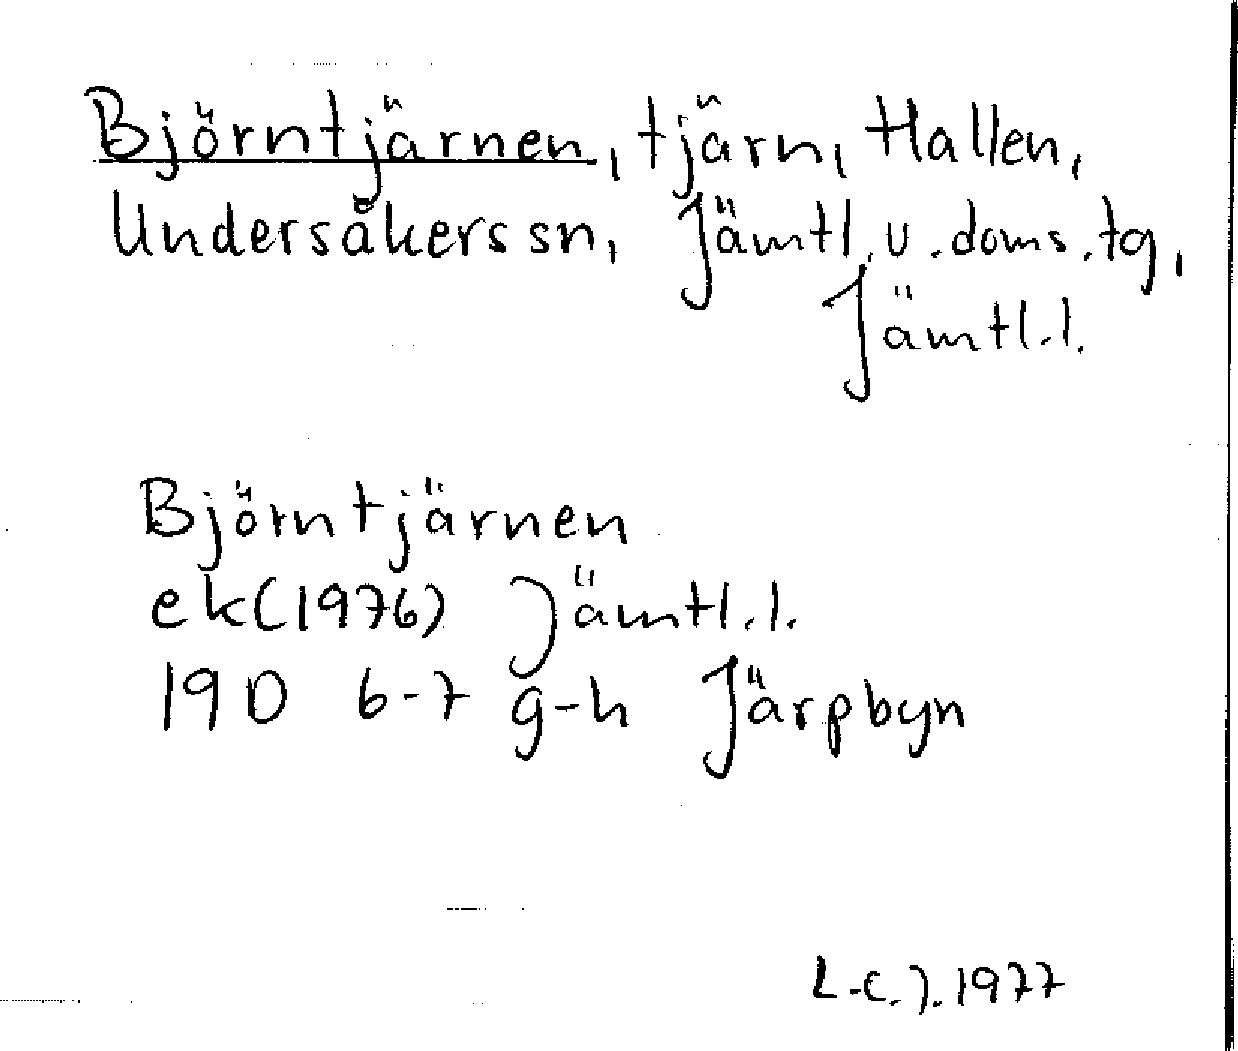 Björntjärnen, tjärn, Hallen,
Undersåkers sn, Jämtl. v. doms. tg,
Jämtl.l.
Björntjärnen
ek(1976) Jämtl.l.
19D 6-7 g-h Järpbyn
L-C.J.1977